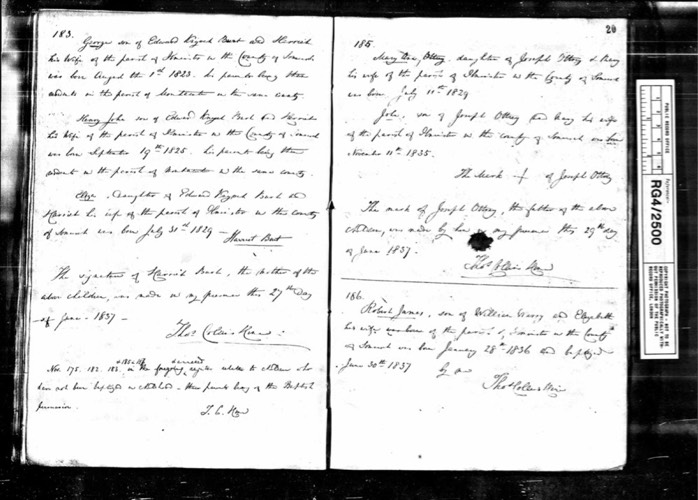 183.
George son of Edward Keyard Bart and Harriet
his Wife of the parish of Ilminster in the County of Somerset
was born August the 1st 1823. his parents being then
in the parish of in the same county.
Henry John son of Edward Keyard and Harriet
his Wife of the parish of Ilminster in the County of Somerset
was born September 19th 1825. his parents being then
in the parish of in the same county.
Eliza, Daughter of Edward Keyard and
Harriet his wife of the parish of Ilminster in the county
of Somerset was born July 31st 1829 — Harriet
The signature of Harriet the mother of the
above children, was made in my presence this 29th Day
of June 1837 —
Thos
Nos. 175. 182. 183. in the foregoing register relate to children who
have not been baptized in childhood — their parents being of the Baptist
T. C.
20
185.
Mary Ann Ottery daughter of Joseph Ottery & Mary
his wife of the parish of Ilminster in the County of Somerset
was born July 11th 1829
John, son of Joseph Ottery and Mary his wife
of the parish of Ilminster in the county of Somerset was born
November 11th 1835.
The Mark + of Joseph Ottery
The mark of Joseph Ottery, the father of the above
children, was made by him in my presence this 29th day
of June 1837.
Thos
186.
Robert James, son of William and Elizabeth
his wife of the parish of Ilminster in the County
of Somerset was born January 28th 1836 and baptized
June 30th 1837 By me
Thos
PUBLIC RECORD OFFICE
Reference:-
RG4/2500
COPYRIGHT PHOTOGRAPH - NOT TO BE
REPRODUCED PHOTOGRAPHICALLY WITH-
OUT PERMISSION OF THE PUBLIC
RECORD OFFICE, LONDON